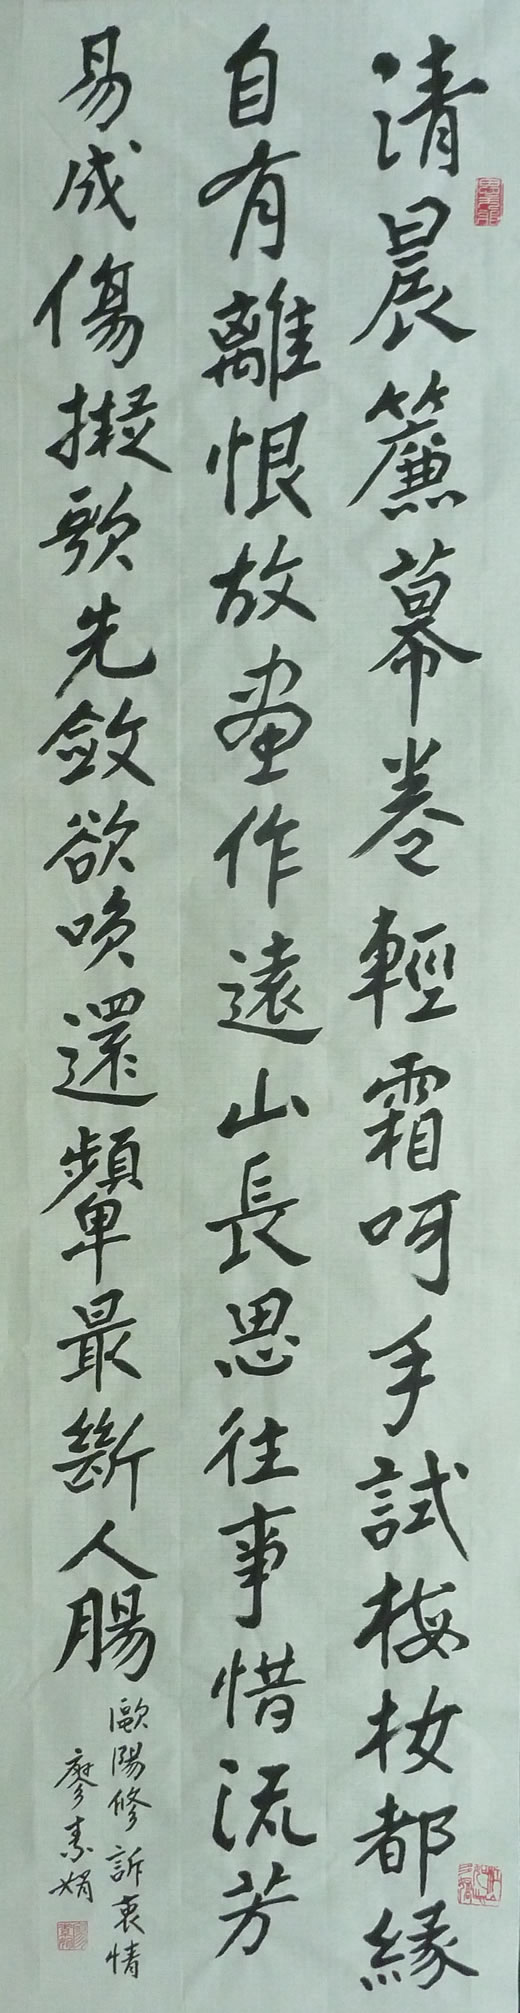 清晨簾幕卷輕霜呵手試梅妝都緣
自有離恨故畫作遠山長思往事惜流芳
易成傷擬歌先斂欲唤還顰最斷人腸
歐陽修訴衷情
廖素娟